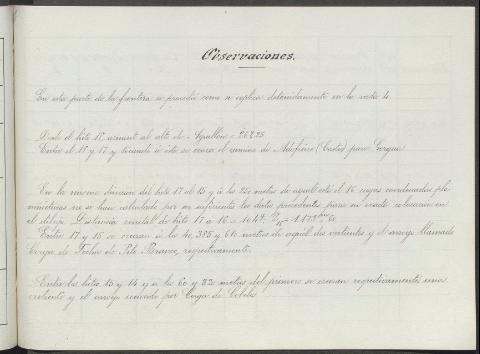 Observaciones.
En esta parte de la frontera se procedió como se esplica detenidamente en la nota 4
Desde el hito 17, azimut al alto de Agullons = 262,25
Entre el 18 y 17 y tocando á éste se cruza el camino de para
En la misma dirección del hito 17 al 15 y á los 250 metros de aquél está el 16 cuyas coordenadas pla
nimétricas no se han calculado por ser suficientes los datos precedentes para su exacta colocación en
el dibujo. Distancia cenital de hito 17 á 16 =
Entre 17 y 15 se cruzan á los 40, 385 y 610 metros de aquél dos vertientes y el arroyo llamado
respectivamente.
Entre los hitos 15 y 14 y á los 60 y 820 metros del primero se cruzan respectivamente una
vertiente y el arroyo conocido por